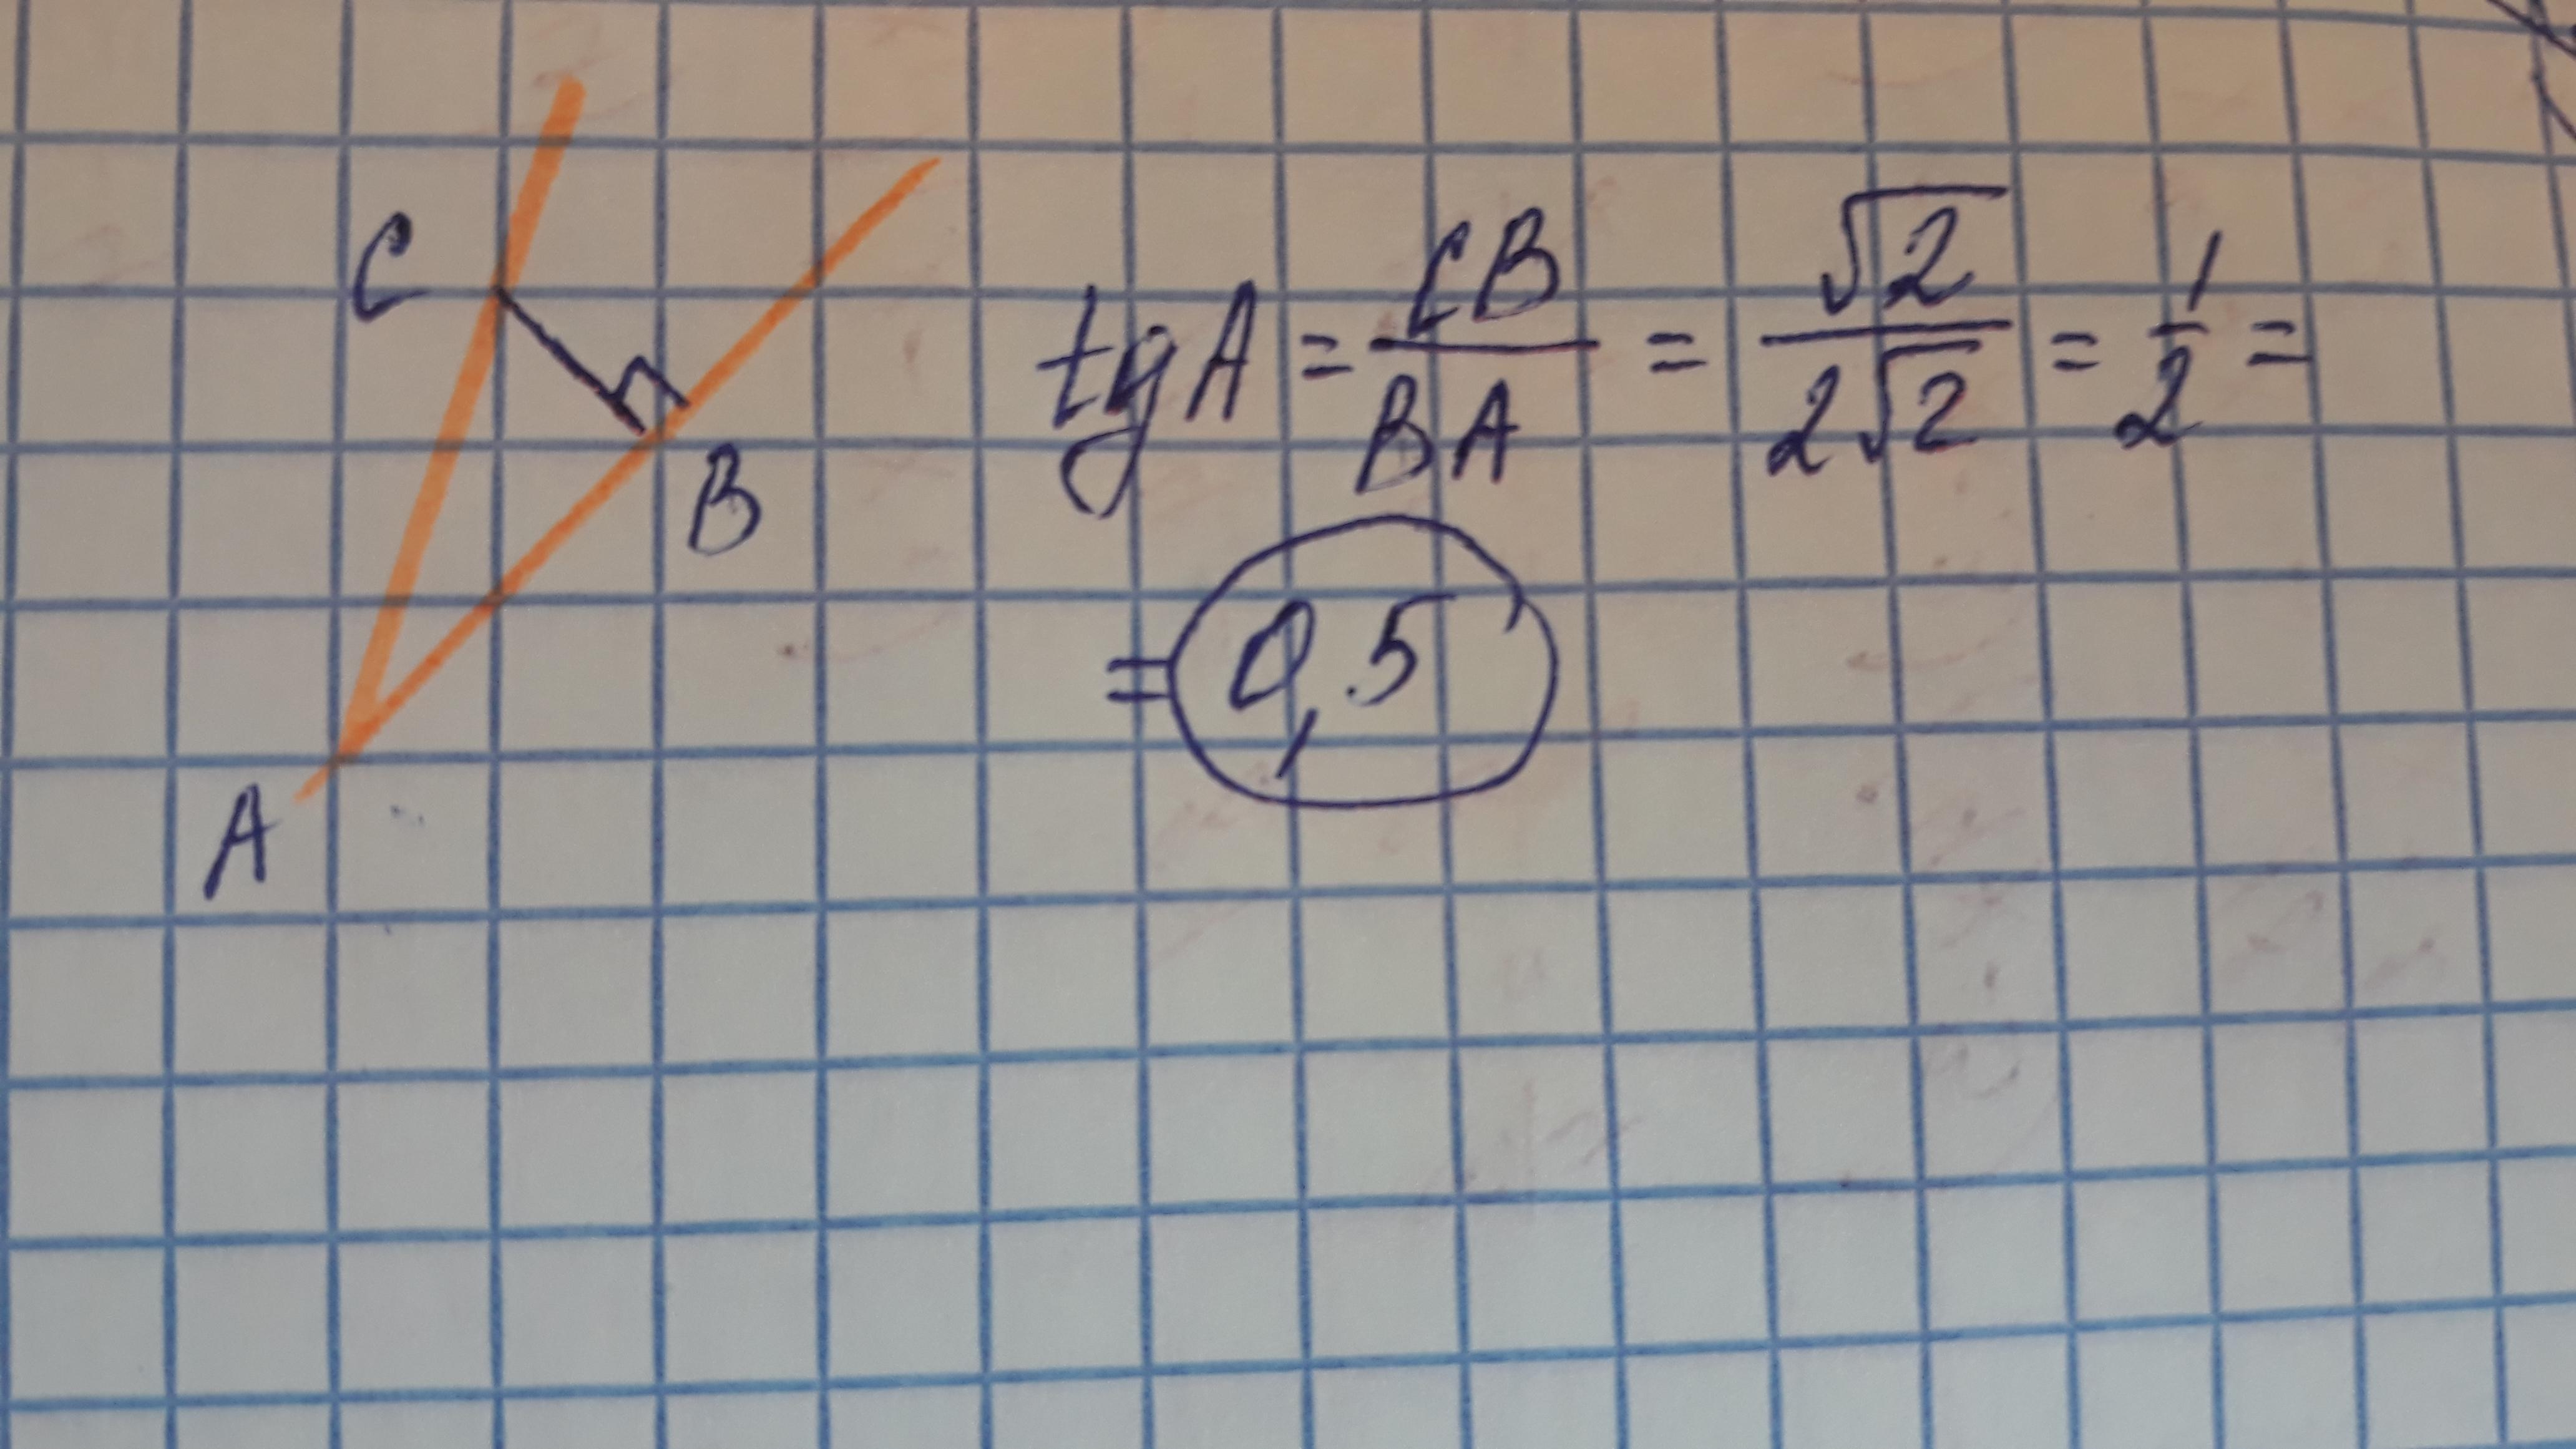 C
B
A
tgA = CB/BA = √2/2√2 = 1/2 =
= 0,5